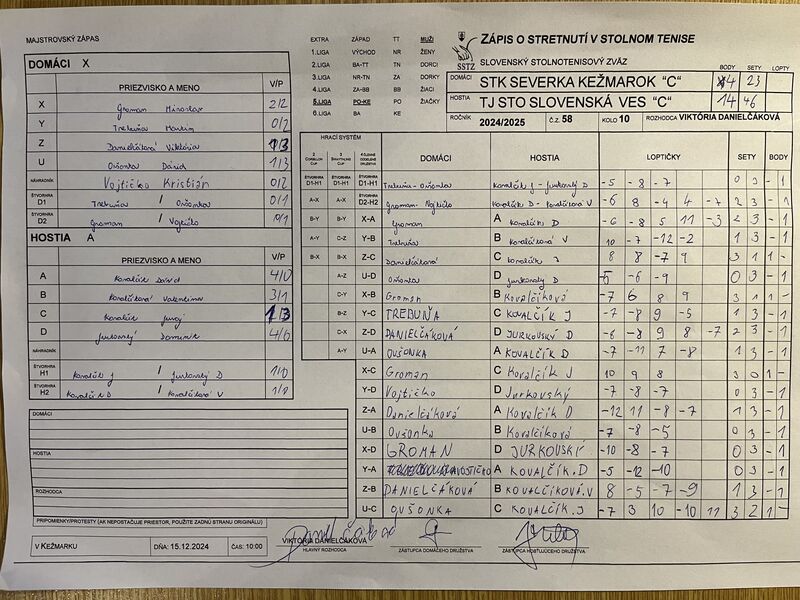 MAJSTROVSKÝ ZÁPAS
DOMÁCI X
PRIEZVISKO A MENO V/P
X Groman Miroslav 2/2
Y Trebuňa Martin 0/2
Z Danielčáková Viktória 1/3
U Oušonka Dávid 1/3
NÁHRADNÍK Vojtičko Kristián 0/2
ŠTVORHRA D1 Trebuňa / Oušonka 0/1
ŠTVORHRA D2 Groman / Vojtičko 0/1
HOSTIA A
PRIEZVISKO A MENO V/P
A Kovalčík Dávid 4/0
B Kovalčíková Valentína 3/1
C Kovalčík Juraj 1/3
D Jurkovský Dominik 4/0
NÁHRADNÍK
ŠTVORHRA H1 Kovalčík J / Jurkovský D 1/0
ŠTVORHRA H2 Kovalčík D / Kovalčíková V 1/0
DOMÁCI
HOSTIA
ROZHODCA
PRIPOMIENKY/PROTESTY (AK NEPOSTAČUJE PRIESTOR, POUŽITE ZADNÚ STRANU ORIGINÁLU)
V KEŽMARKU DŇA: 15.12.2024 ČAS: 10:00
EXTRA ZÁPAD TT MUŽI
1.LIGA VÝCHOD NR ŽENY
2.LIGA BA-TT TN DORCI
3.LIGA NR-TN ZA DORKY
4.LIGA ZA-BB BB ŽIACI
5.LIGA PO-KE PO ŽIAČKY
6.LIGA BA KE
SSTZ
ZÁPIS O STRETNUTÍ V STOLNOM TENISE
SLOVENSKÝ STOLNOTENISOVÝ ZVÄZ
BODY SETY LOPTY
DOMÁCI STK SEVERKA KEŽMAROK "C" 4 23
HOSTIA TJ STO SLOVENSKÁ VES "C" 14 46
ROČNÍK 2024/2025 Č.Z. 58 KOLO 10 ROZHODCA VIKTÓRIA DANIELČÁKOVÁ
HRACÍ SYSTÉM DOMÁCI HOSTIA LOPTIČKY SETY BODY
ŠTVORHRA D1-H1 ŠTVORHRA D1-H1 ŠTVORHRA D1-H1 Trebuňa - Oušonka Kovalčík J - Jurkovský D -5 -8 -7 0 3 - 1
A-X A-X ŠTVORHRA D2-H2 Groman - Vojtičko Kovalčík D - Kovalčíková V -6 8 -4 4 -7 2 3 - 1
B-Y B-Y X-A Groman A Kovalčík D -6 -8 5 11 -3 2 3 - 1
A-Y C-Z Y-B Trebuňa B Kovalčíková V 10 -7 -12 -2 1 3 - 1
B-X B-X Z-C Danielčáková C Kovalčík J 8 8 -7 9 3 1 1 -
A-Z U-D Oušonka D Jurkovský D -5 -6 -9 0 3 - 1
C-Y X-B Groman B Kovalčíková -7 6 8 9 3 1 1 -
B-Z Y-C TREBUŇA C KOVALČÍK J -7 -8 9 -5 1 3 - 1
C-X Z-D DANIELČÁKOVÁ D JURKOVSKÝ D -6 -8 9 8 -7 2 3 - 1
A-Y U-A OUŠONKA A KOVALČÍK D -7 -11 7 -8 1 3 - 1
X-C Groman C Kovalčík J 10 9 8 3 0 1 -
Y-D Vojtičko D Jurkovský -7 -8 -7 0 3 - 1
Z-A Danielčáková A Kovalčík D -12 11 -8 -7 1 3 - 1
U-B Oušonka B Kovalčíková -7 -8 -5 0 3 - 1
X-D GROMAN D JURKOVSKÝ -10 -8 -7 0 3 - 1
Y-A A KOVALČÍK.D -5 -12 -10 0 3 - 1
Z-B DANIELČÁKOVÁ B KOVALČÍKOVÁ.V 8 -5 -7 -9 1 3 - 1
U-C OUŠONKA C KOVALČÍK.J -7 3 10 -10 11 3 2 1 -
VIKTÓRIA DANIELČÁKOVÁ
HLAVNÝ ROZHODCA
ZÁSTUPCA DOMÁCEHO DRUŽSTVA
ZÁSTUPCA HOSŤUJÚCEHO DRUŽSTVA